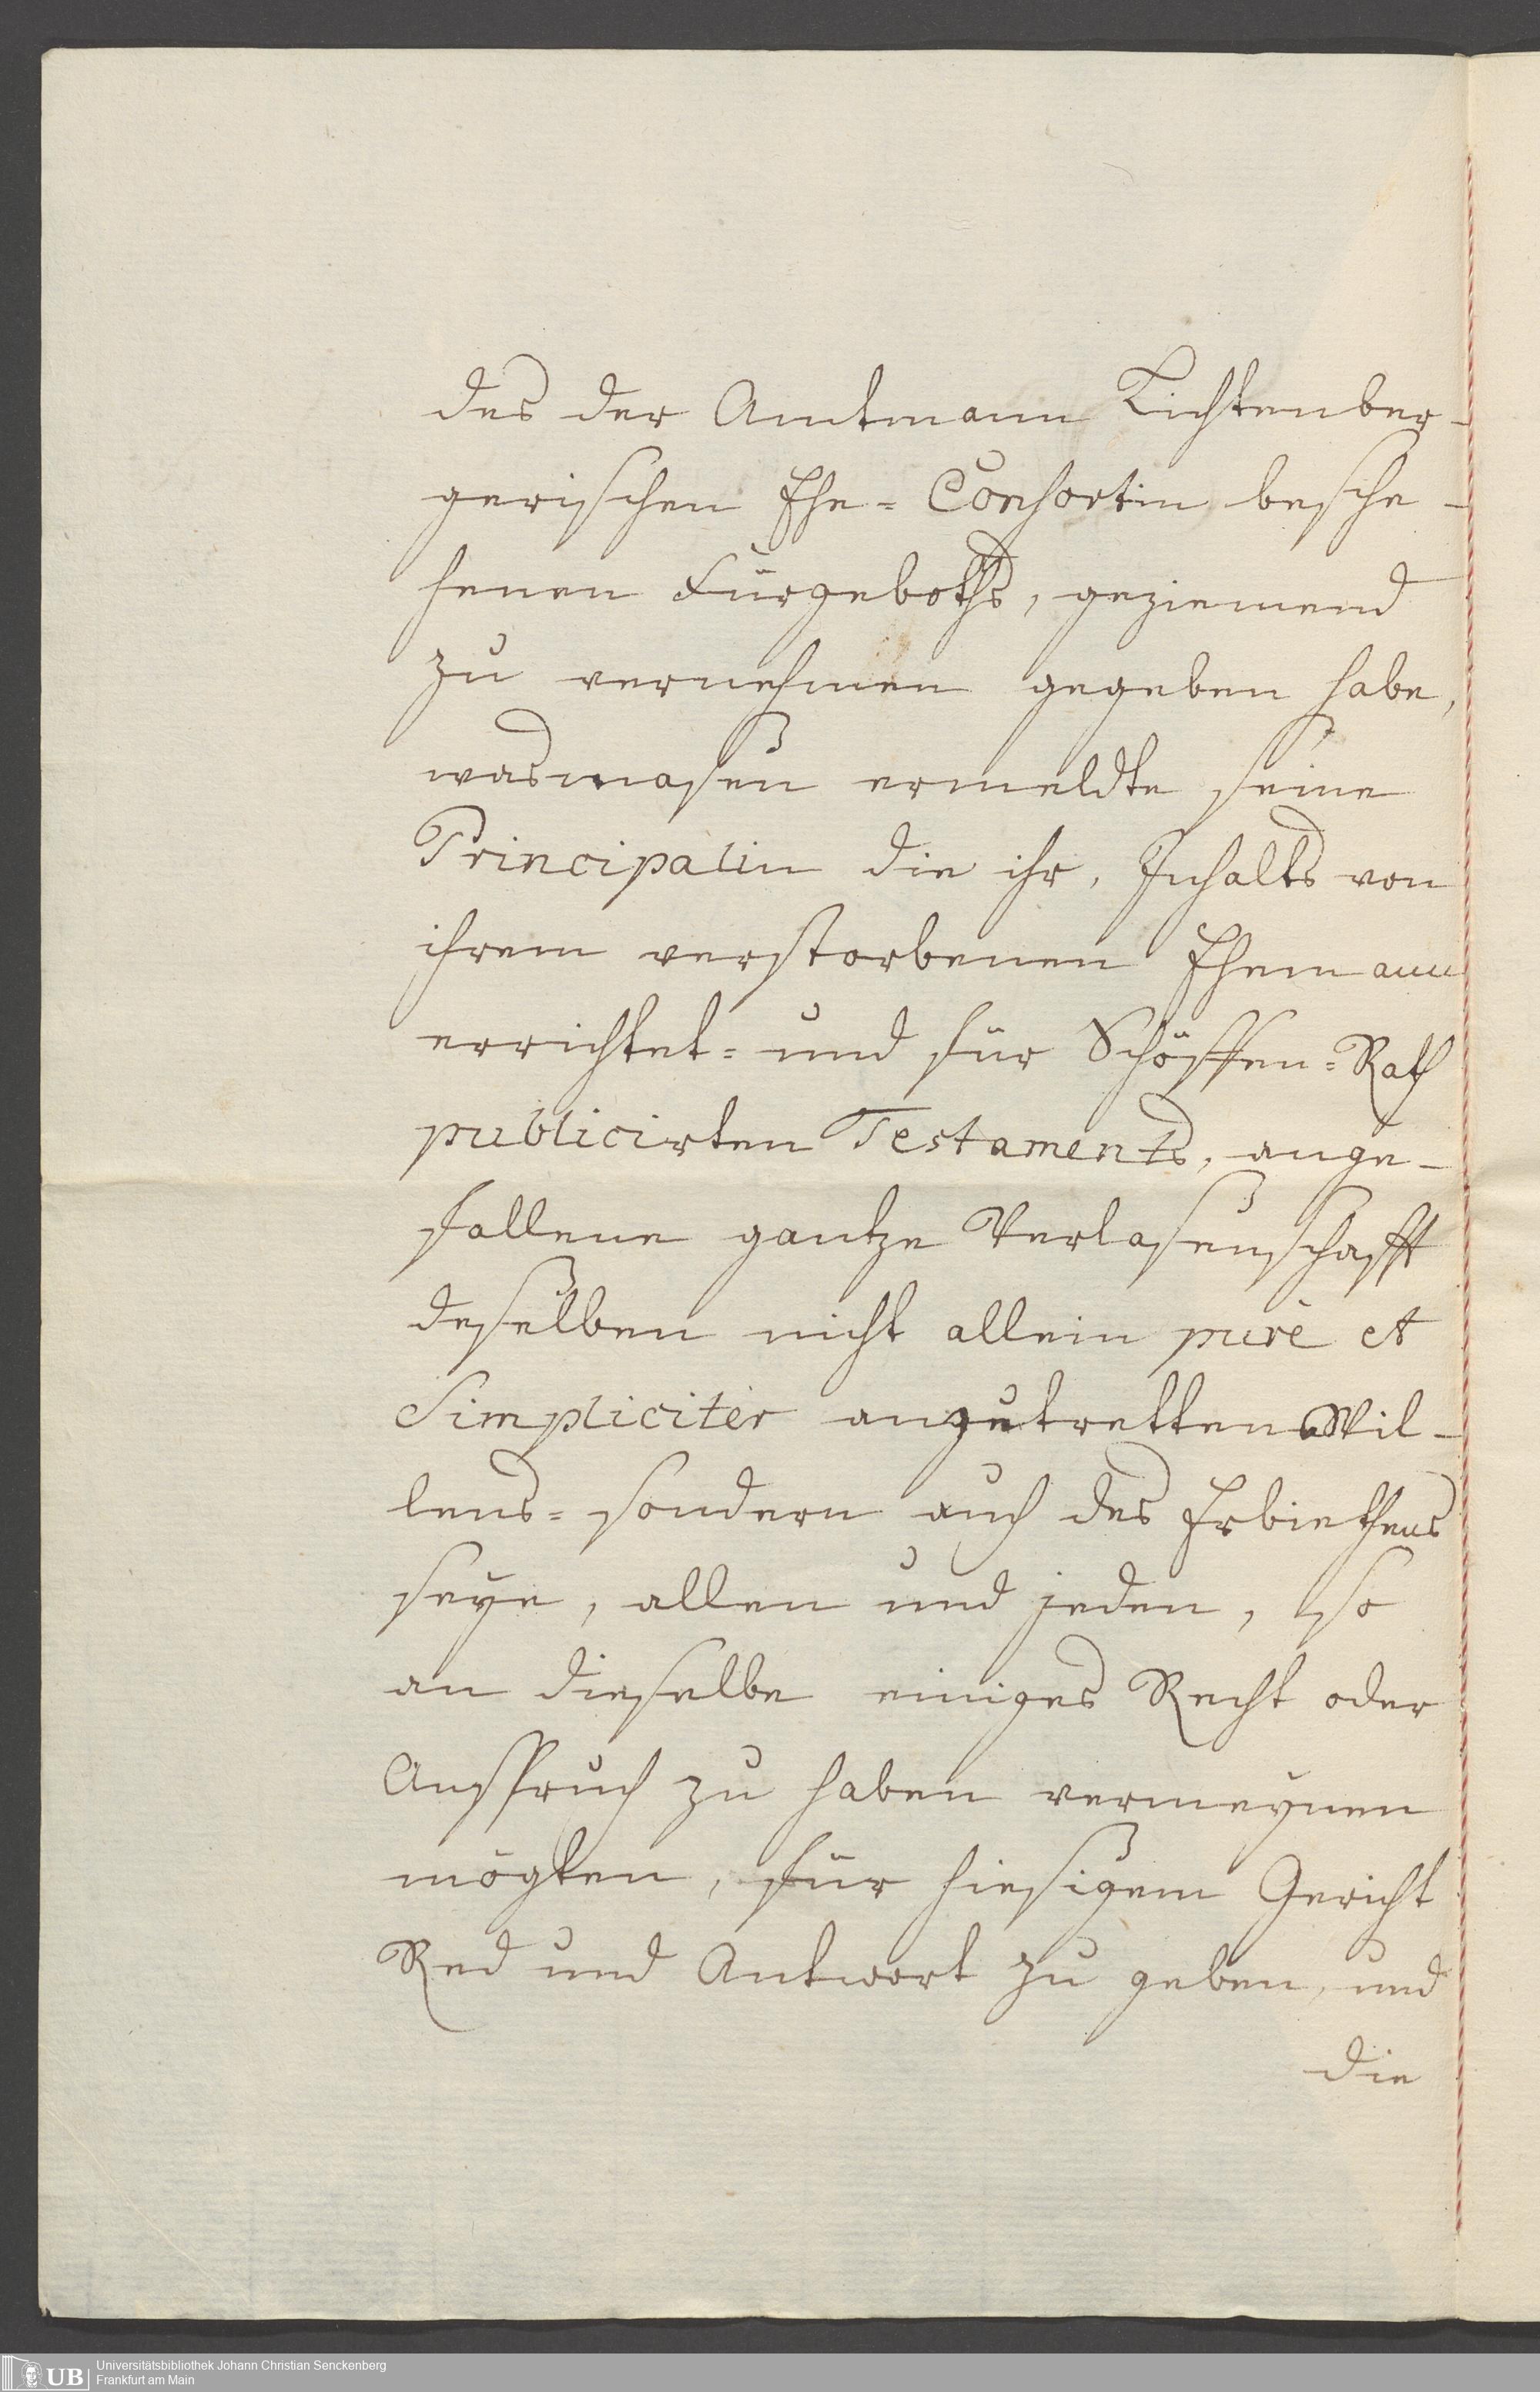 des der Amtmann Lichtenber-
gerischen Ehe-Consortin besche-
henen Fürgeboths, geziemend
zu vernehmen gegeben habe,
wasmasen ermeldte seine
Principalin die ihr, Inhalts von
ihrem verstorbenen Ehemann
errichtet- und für Schöffen-Rath
publicirten Testaments, ange-
fallene gantze Verlasenschafft
deselben nicht allein purè et
Simplicitèr anzutretten Wil-
lens- sondern auch des Erbiethens
seye, allen und jeden, so
an dieselbe einiges Recht oder
Anspruch zu haben vermeynen
mögten, für hiesigem Gericht
Red und Antwort zu geben, und
die
UB Universitätsbibliothek Johann Christian Senckenberg
Frankfurt am Main